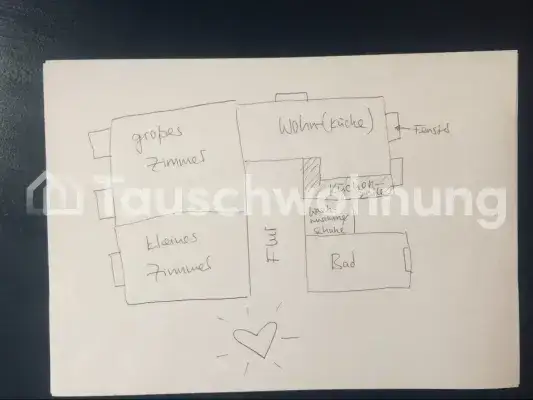 großes
Zimmer
Wohn(küche)
Fenster
Tauschwohnung
kleines
Zimmer
Flur
Bad